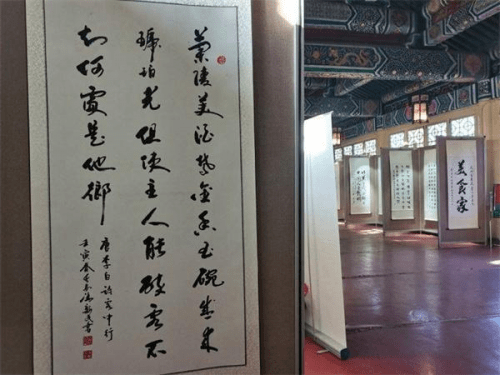 蘭陵美酒鬱金香玉碗盛来
琥珀光但使主人能醉客不
知何處是他鄉
唐李白詩客中行
壬寅春
美食家